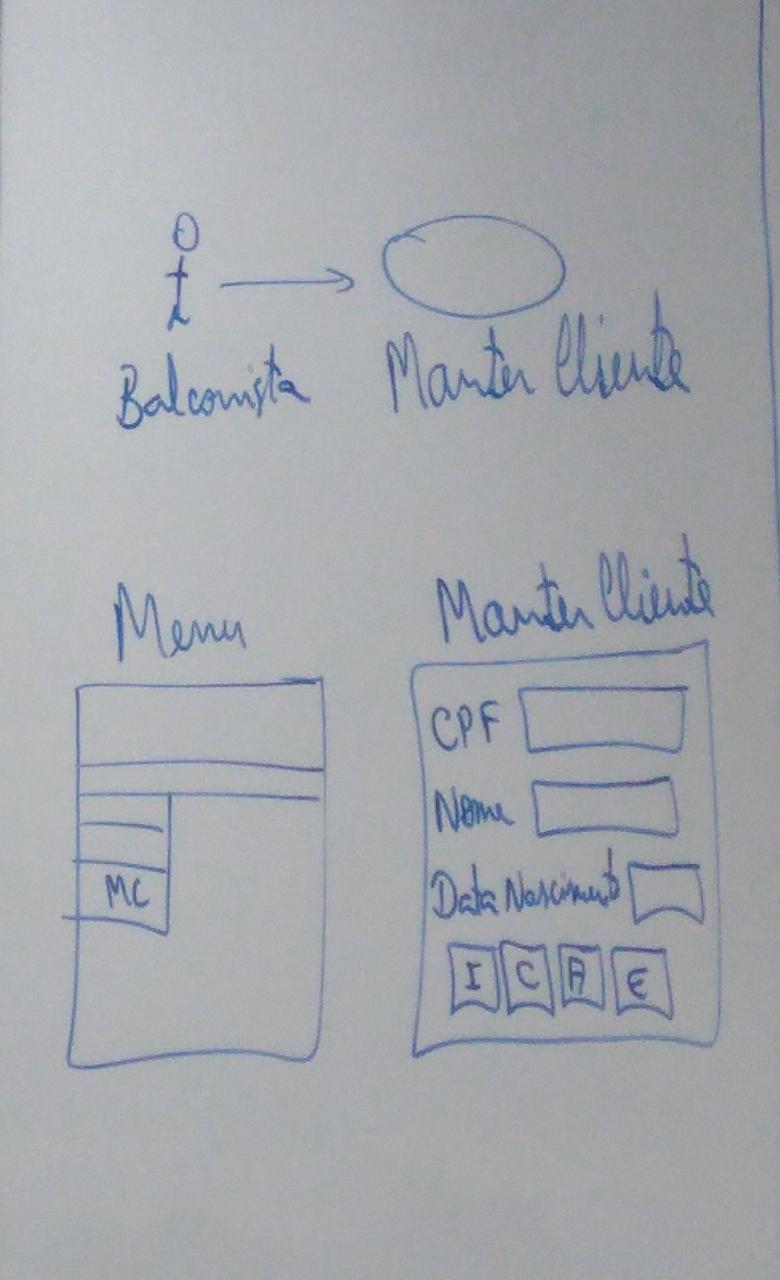 Balconista
Manter Cliente
Menu
Manter Cliente
CPF
Nome
Data Nascimento
MC
I C A E